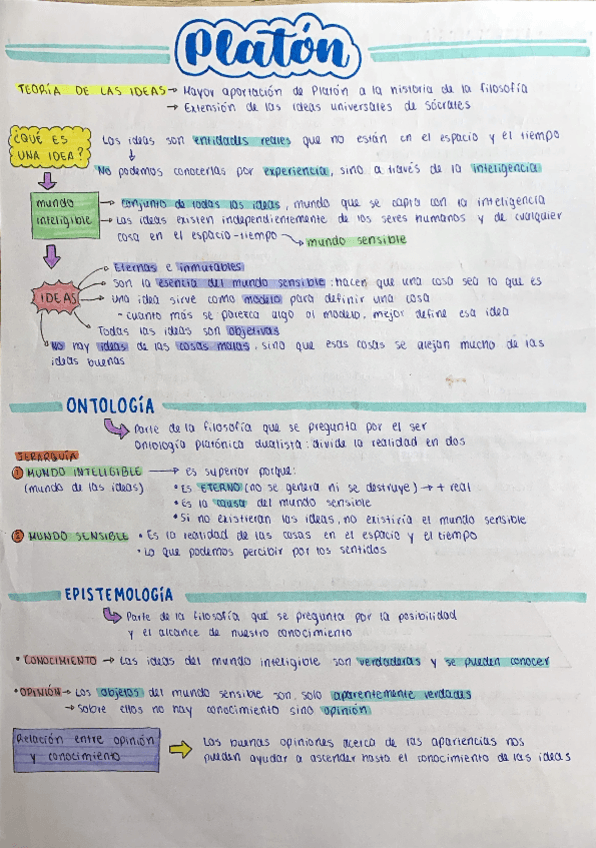 Platón
TEORÍA DE LAS IDEAS → Mayor aportación de Platón a la historia de la filosofía
→ Extensión de las ideas universales de Sócrates
¿QUÉ ES UNA IDEA?
Las ideas son entidades reales que no están en el espacio y el tiempo
↓
No podemos conocerlas por experiencia, sino a través de la inteligencia
mundo inteligible
→ Conjunto de todas las ideas, mundo que se capta con la inteligencia
→ Las ideas existen independientemente de los seres humanos y de cualquier
cosa en el espacio-tiempo → mundo sensible
IDEAS
Eternas e inmutables
Son la esencia del mundo sensible: hacen que una cosa sea lo que es
una idea sirve como modelo para definir una cosa
- cuanto más se parezca algo al modelo, mejor define esa idea
Todas las ideas son objetivas
No hay ideas de las cosas malas, sino que esas cosas se alejan mucho de las
ideas buenas
ONTOLOGÍA
Parte de la filosofía que se pregunta por el ser
Ontología platónica dualista: divide la realidad en dos
JERARQUÍA
1 MUNDO INTELIGIBLE → es superior porque:
(mundo de las ideas) • Es ETERNO (no se genera ni se destruye) → + real
• Es la causa del mundo sensible
• Si no existieran las ideas, no existiría el mundo sensible
2 MUNDO SENSIBLE • Es la realidad de las cosas en el espacio y el tiempo
• Lo que podemos percibir por los sentidos
EPISTEMOLOGÍA
Parte de la filosofía que se pregunta por la posibilidad
y el alcance de nuestro conocimiento
• CONOCIMIENTO → Las ideas del mundo inteligible son verdaderas y se pueden conocer
• OPINIÓN → Los objetos del mundo sensible son, solo aparentemente verdades
→ Sobre ellos no hay conocimiento sino opinión
Relación entre opinión
y conocimiento
Las buenas opiniones acerca de las apariencias nos
pueden ayudar a ascender hasta el conocimiento de las ideas